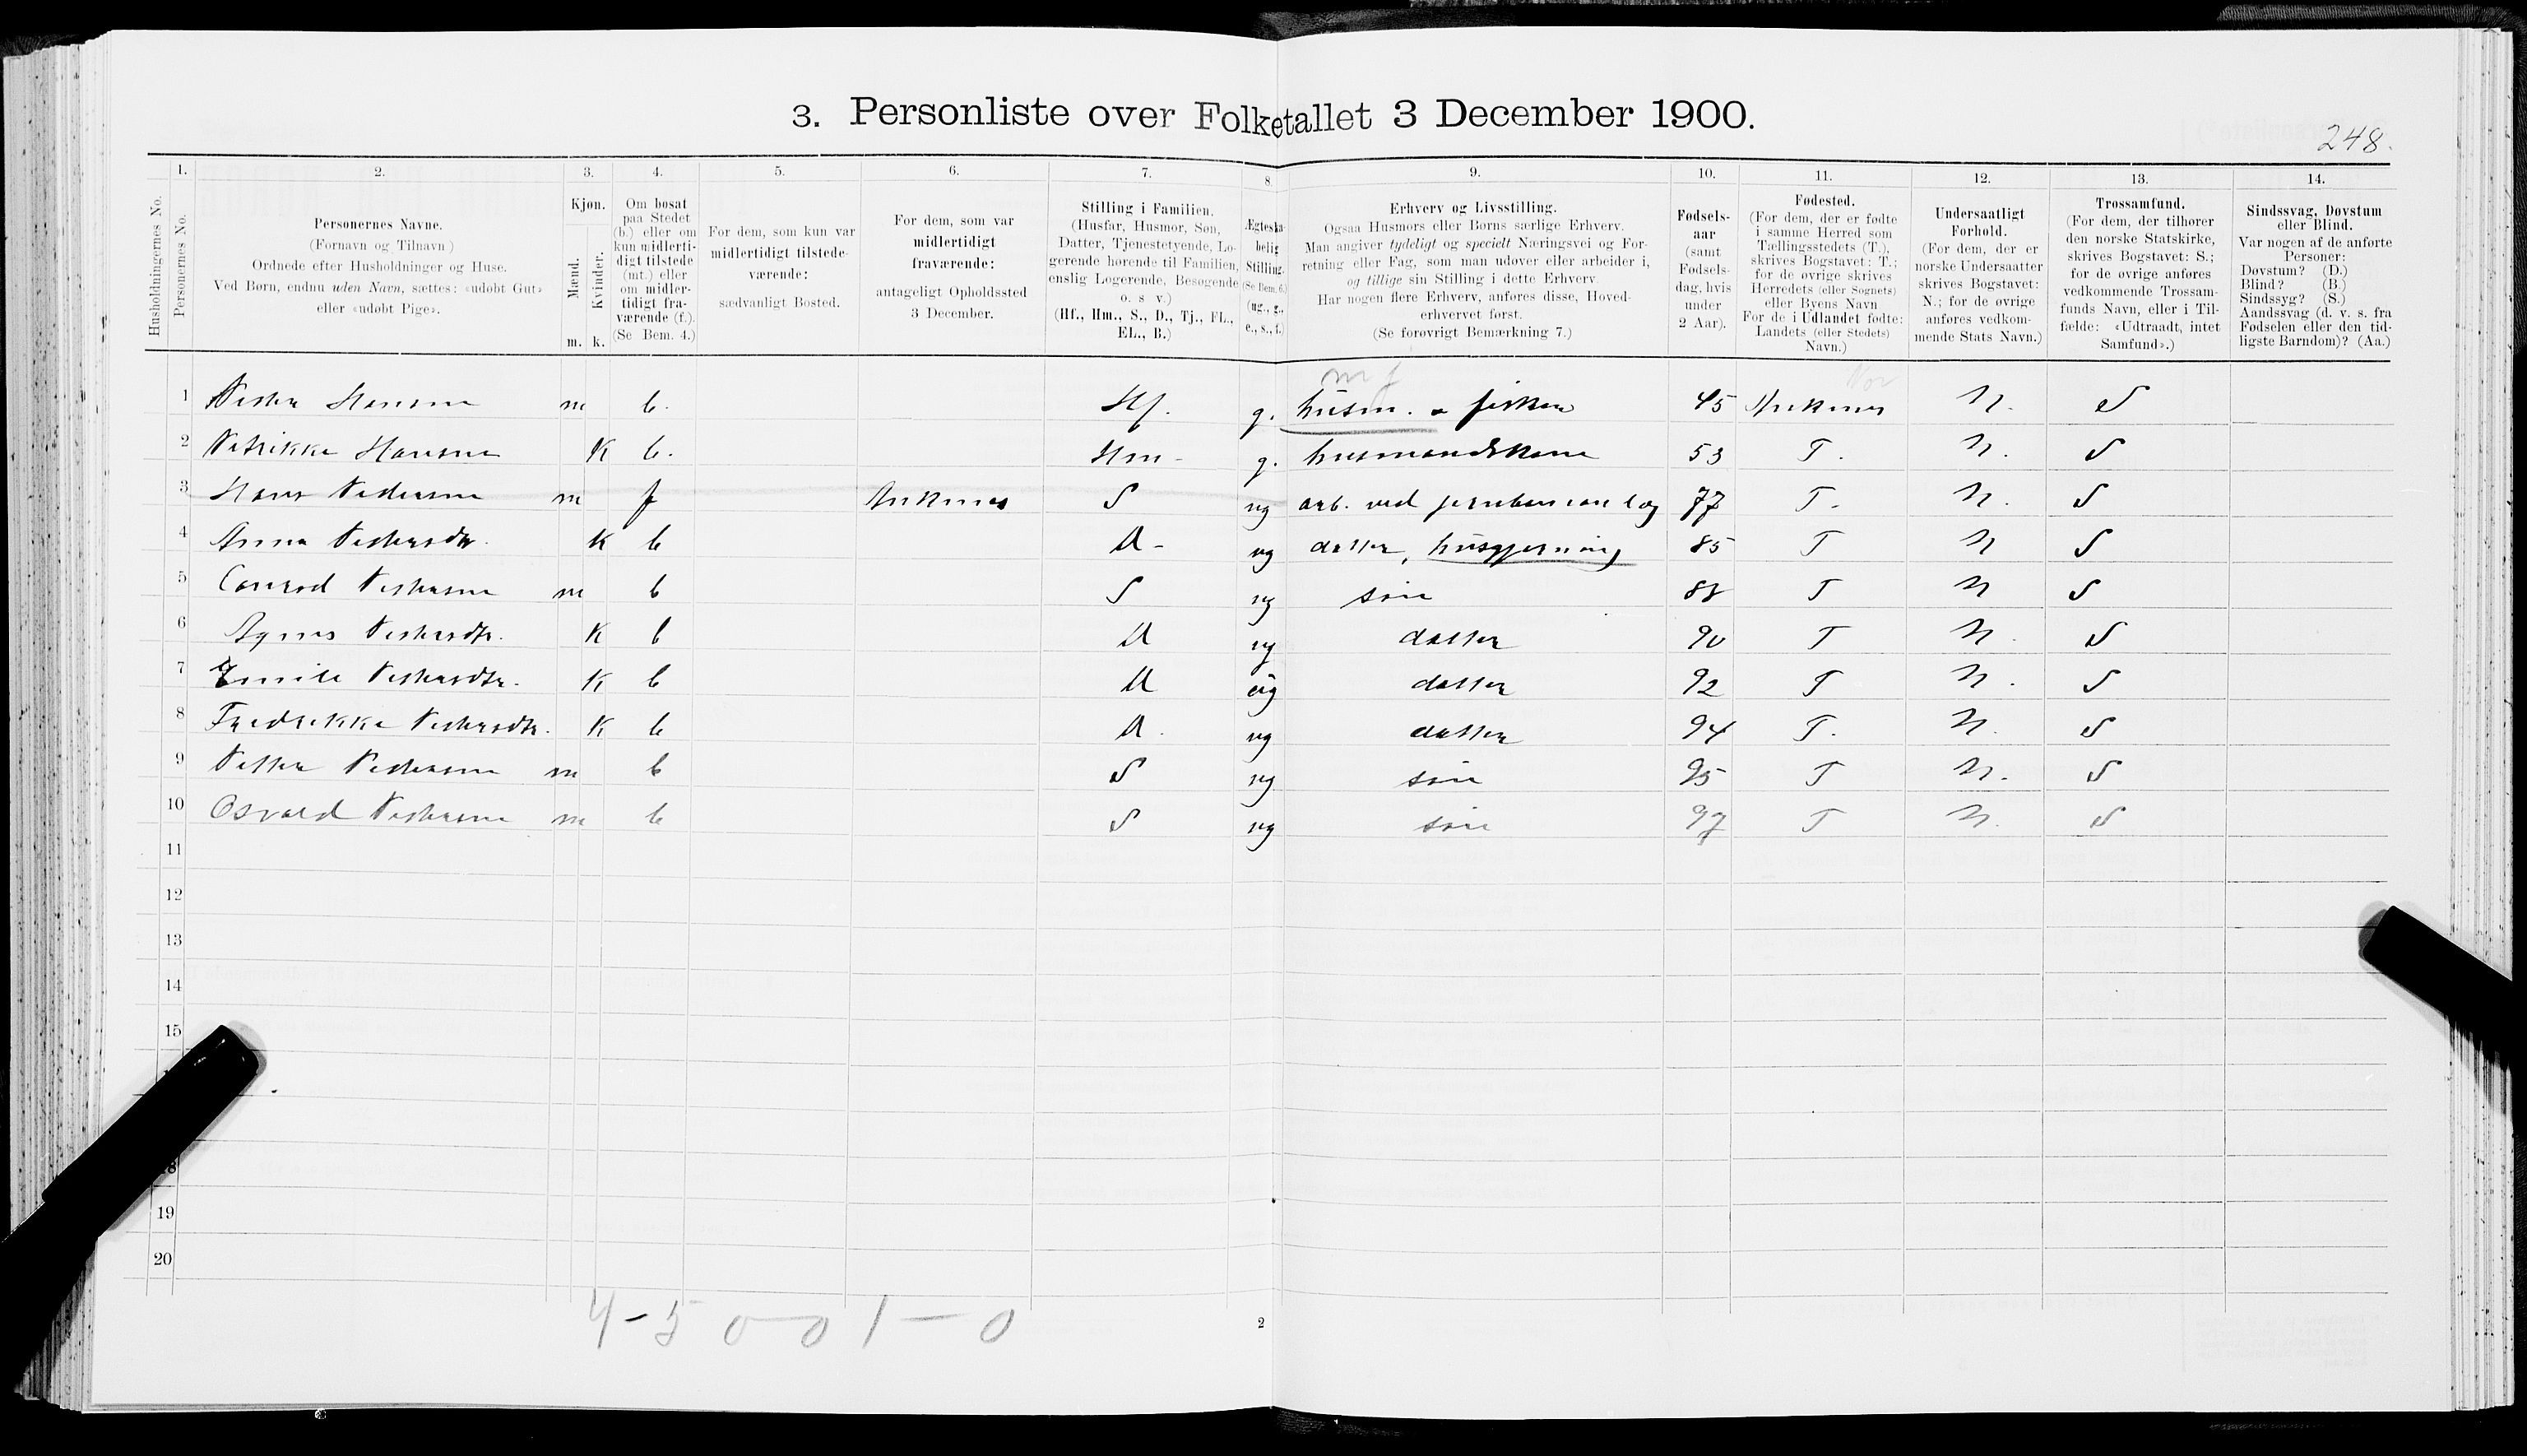 3. Personliste over Folketallet 3 December 1900.
248.
1. 2. 3. 4. 5. 6. 7. 8. 9. 10. 11. 12. 13. 14.
Husholdningernes No.
Personernes No.
Personernes Navne.
(Fornavn og Tilnavn)
Ordnede efter Husholdninger og Huse.
Ved Børn, endnu uden Navn, sættes: «udøbt Gut»
eller «udøbt Pige».
Kjøn.
Mænd.
Kvinder.
m. k.
Om bosat
paa Stedet
(b.) eller om
kun midlerti-
digt tilstede
(mt.) eller
om midler-
tidigt fra-
værende (f.).
(Se Bem. 4.)
For dem, som kun var
midlertidigt tilstede-
værende:
sædvanligt Bosted.
For dem, som var
midlertidigt
fraværende:
antageligt Opholdssted
3 December.
Stilling i Familien.
(Husfar, Husmor, Søn,
Datter, Tjenestetyende, Lo-
gerende hørende til Familien,
enslig Logerende, Besøgende
o. s v.)
(Hf., Hm., S., D., Tj., FL.,
EL., B.)
Ægteska-
belig
Stilling.
(Se Bem. 6.)
(ug., g.,
e., s., f.)
Erhverv og Livsstilling.
Ogsaa Husmors eller Børns særlige Erhverv.
Man angiver tydeligt og specielt Næringsvei og For-
retning eller Fag, som man udøver eller arbeider i,
og tillige sin Stilling i dette Erhverv.
Har nogen flere Erhverv, anføres disse, Hoved-
erhvervet først.
(Se forøvrigt Bemærkning 7.)
Fødsels-
aar
(samt
Fødsels-
dag, hvis
under
2 Aar).
Fødested.
(For dem, der er fødte
i samme Herred som
Tællingsstedets (T.),
skrives Bogstavet: T.;
for de øvrige skrives
Herredets (eller Sognets)
eller Byens Navn
For de i Udlandet fødte:
Landets (eller Stedets)
Navn.)
Undersaatligt
Forhold.
(For dem, der er
norske Undersaatter
skrives Bogstavet:
N.; for de øvrige
anføres vedkom-
mende Stats Navn.)
Trossamfund.
(For dem, der tilhører
den norske Statskirke,
skrives Bogstavet: S.;
for de øvrige anføres
vedkommende Trossam-
funds Navn, eller i Til-
fælde: «Udtraadt, intet
Samfund».)
Sindssvag, Døvstum
eller Blind.
Var nogen af de anførte
Personer:
Døvstum? (D.)
Blind? (B.)
Sindssyg? (S.)
Aandssvag (d. v. s. fra
Fødselen eller den tid-
ligste Barndom)? (Aa.)
m f Nor
1 Peder Hansen m b. Hf. g. husm. & fisker 45 Ankenes N. S
2 Petrikke Hansen K b. Hm - g. husmandskone 53 T. N. S
3 Hans Pedersen m f Ankenes S ug arb. ved jernbaneanlæg 77 T. N. S
4 Anna Pedersdtr. K b D - ug datter, husgjerning 85 T N S
5 Conrad Pedersen m b S ug søn 88 T N S
6 Agnes Pedersdtr. K b D ug datter 90 T N. S
7 Emilie Pedersdtr. K b D ug datter 92 T N. S
8 Fredrikke Pedersdtr. K b D. ug datter 94 T. N. S
9 Petter Pedersen m b S ug søn 95 T N. S
10 Osvald Pedersen m b S ug søn 97 T N. S
11
12
13
14
15
18
19
20
4-5 0-0 1-0
2